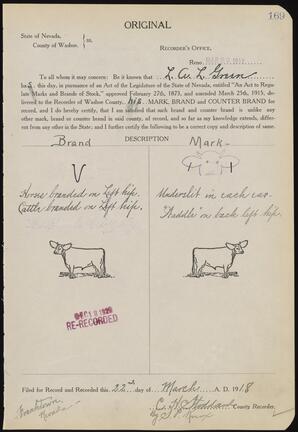 169
ORIGINAL
State of Nevada,
County of Washoe. } ss.
RECORDER'S OFFICE,
Reno,
To all whom it may concern: Be it known that L. W. L. Green
has this day, in pursuance of an Act of the Legislature of the State of Nevada, entitled "An Act to Regu-
late Marks and Brands of Stock," approved February 27th, 1873, and amended March 25th, 1915,
delivered to the Recorder of Washoe County, his MARK, BRAND and COUNTER BRAND for
record, and I do hereby certify, that I am satisfied that such brand and counter brand is unlike any
other mark, brand or counter brand in said county, of record, and so far as my knowledge extends, dif-
ferent from any other in the State; and I further certify the following to be a correct copy and description of same.
DESCRIPTION
Brand Mark
V
Horse branded on left hip.
Cattle branded on left hip.
Underslit in each ear.
Waddle on back left hip.
DEC 18 1920
RE-RECORDED
Filed for Record and Recorded this 22nd day of March A. D. 1918
C. H. Stoddard County Recorder.
By
Franktown
Nevada